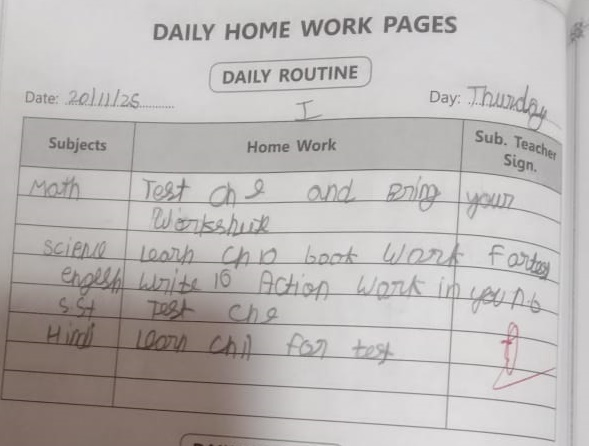 DAILY HOME WORK PAGES
DAILY ROUTINE
Date: 20/11/25 Day: Thursday
I
Subjects Home Work Sub. Teacher Sign.
Math Test ch and Bring your
Worksheet
Science learn ch book work
english write 10 Action work in your
SSt Test ch
Hindi learn ch 11 for test